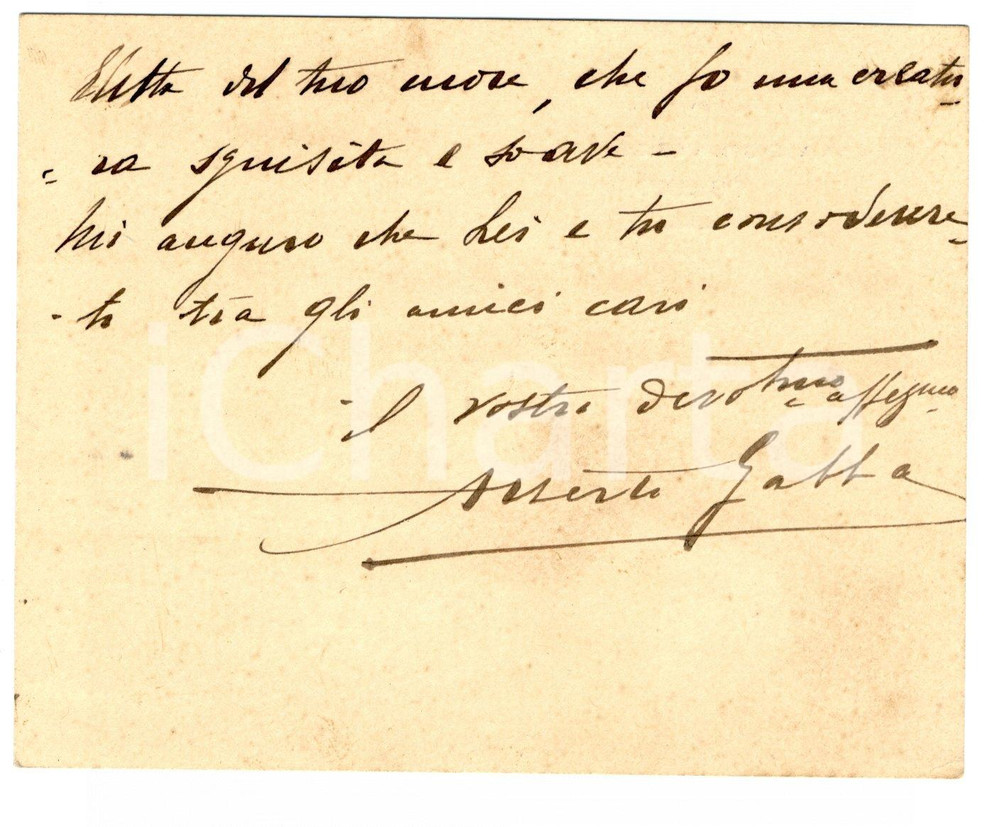 Eletta del tuo cuore, che so una creatu-
-ra squisita e soave -
Mi auguro che Lei e tu considerere-
-te tra gli amici cari
il vostro devotmo affezmo
Alberto Gabba
iCharta